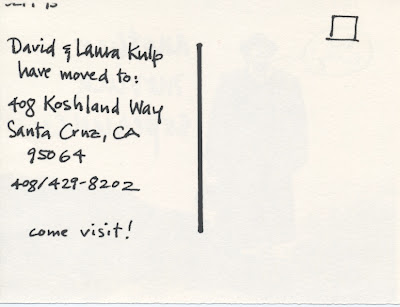 David & Laura Kulp
have moved to:
408 Koshland Way
Santa Cruz, CA
95064
408/429-8202
come visit!